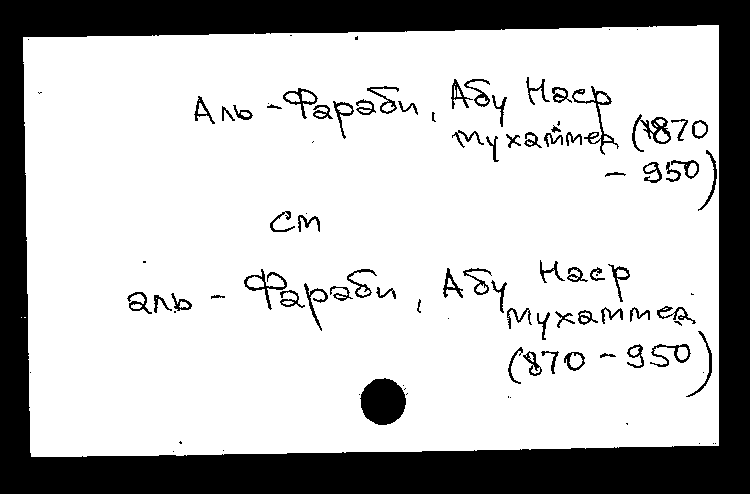 Аль-Фараби, Абу Наср
Мухаммед (870
- 950)
см
аль - Фараби, Абу Наср
Мухаммед
(870 - 950)